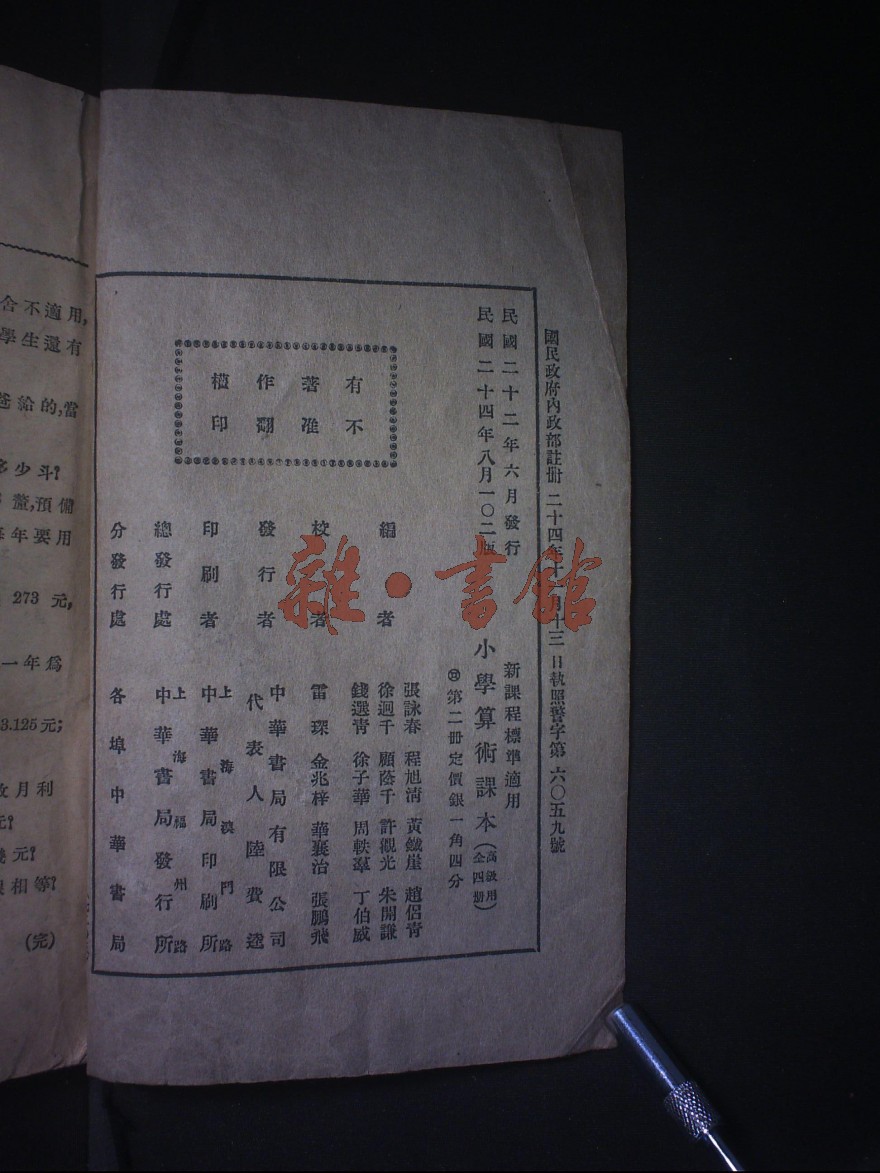 國民政府內政部註册 二十四年十月十三日執照警字第六〇五九號
民國二十二年六月發行
民國二十四年八月一〇二版
新課程標準適用
小學算術課本(高級用全四册)
第二册定價銀一角四分
有著作權
不准翻印
編者
張詠春 程旭淸 黃鐵崖 趙侶靑
徐迥千 顧蔭千 許觀光 朱開謙
錢選靑 徐子華 周軼羣 丁伯威
校者
雷琛 金兆梓 華襄治 張鵬飛
發行者
中華書局有限公司
代表人 陸費逵
印刷者
上海澳門路
中華書局印刷所
總發行處
上海福州路
中華書局發行所
分發行處
各埠中華書局
雜·書館
舍不適用,
學生還有
爸給的,當
多少斗?
釐,預備
年要用
273元,
一年爲
3.125元;
月利
元?
元?
相等?
(完)